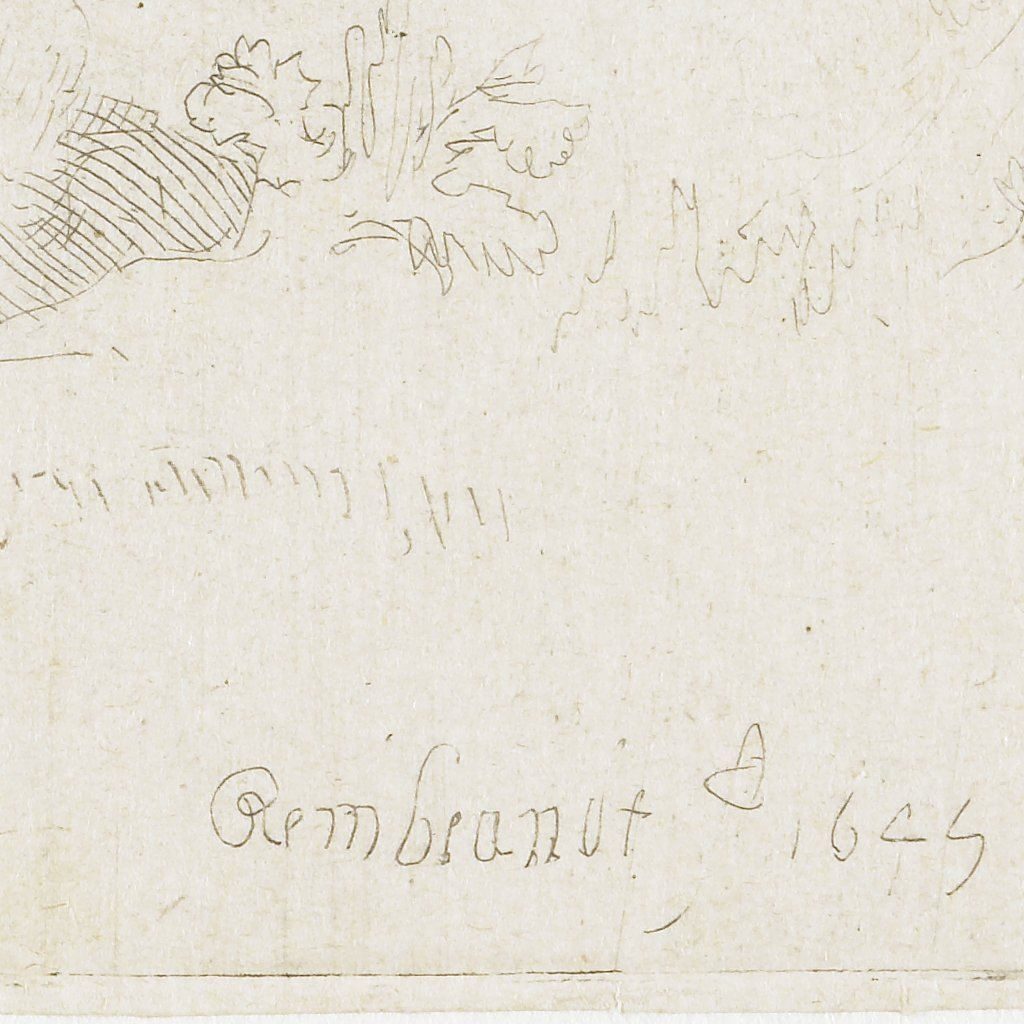 Rembrandt f 1645